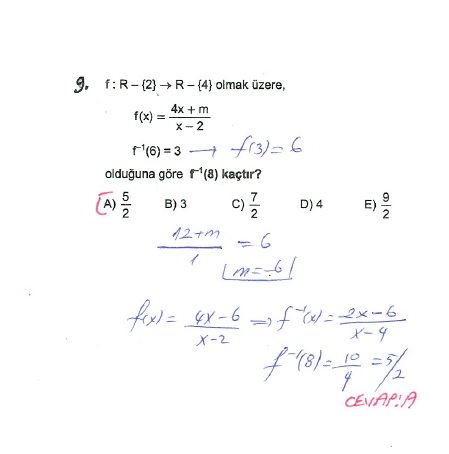 9. f : R – {2} → R – {4} olmak üzere,
f(x) = (4x + m) / (x – 2)
f⁻¹(6) = 3 → f(3) = 6
olduğuna göre f⁻¹(8) kaçtır?
A) 5/2 B) 3 C) 7/2 D) 4 E) 9/2
(12+m)/1 = 6
m = -6
f(x) = (4x-6)/(x-2) ⇒ f⁻¹(x) = (2x-6)/(x-4)
f⁻¹(8) = 10/4 = 5/2
CEVAP: A